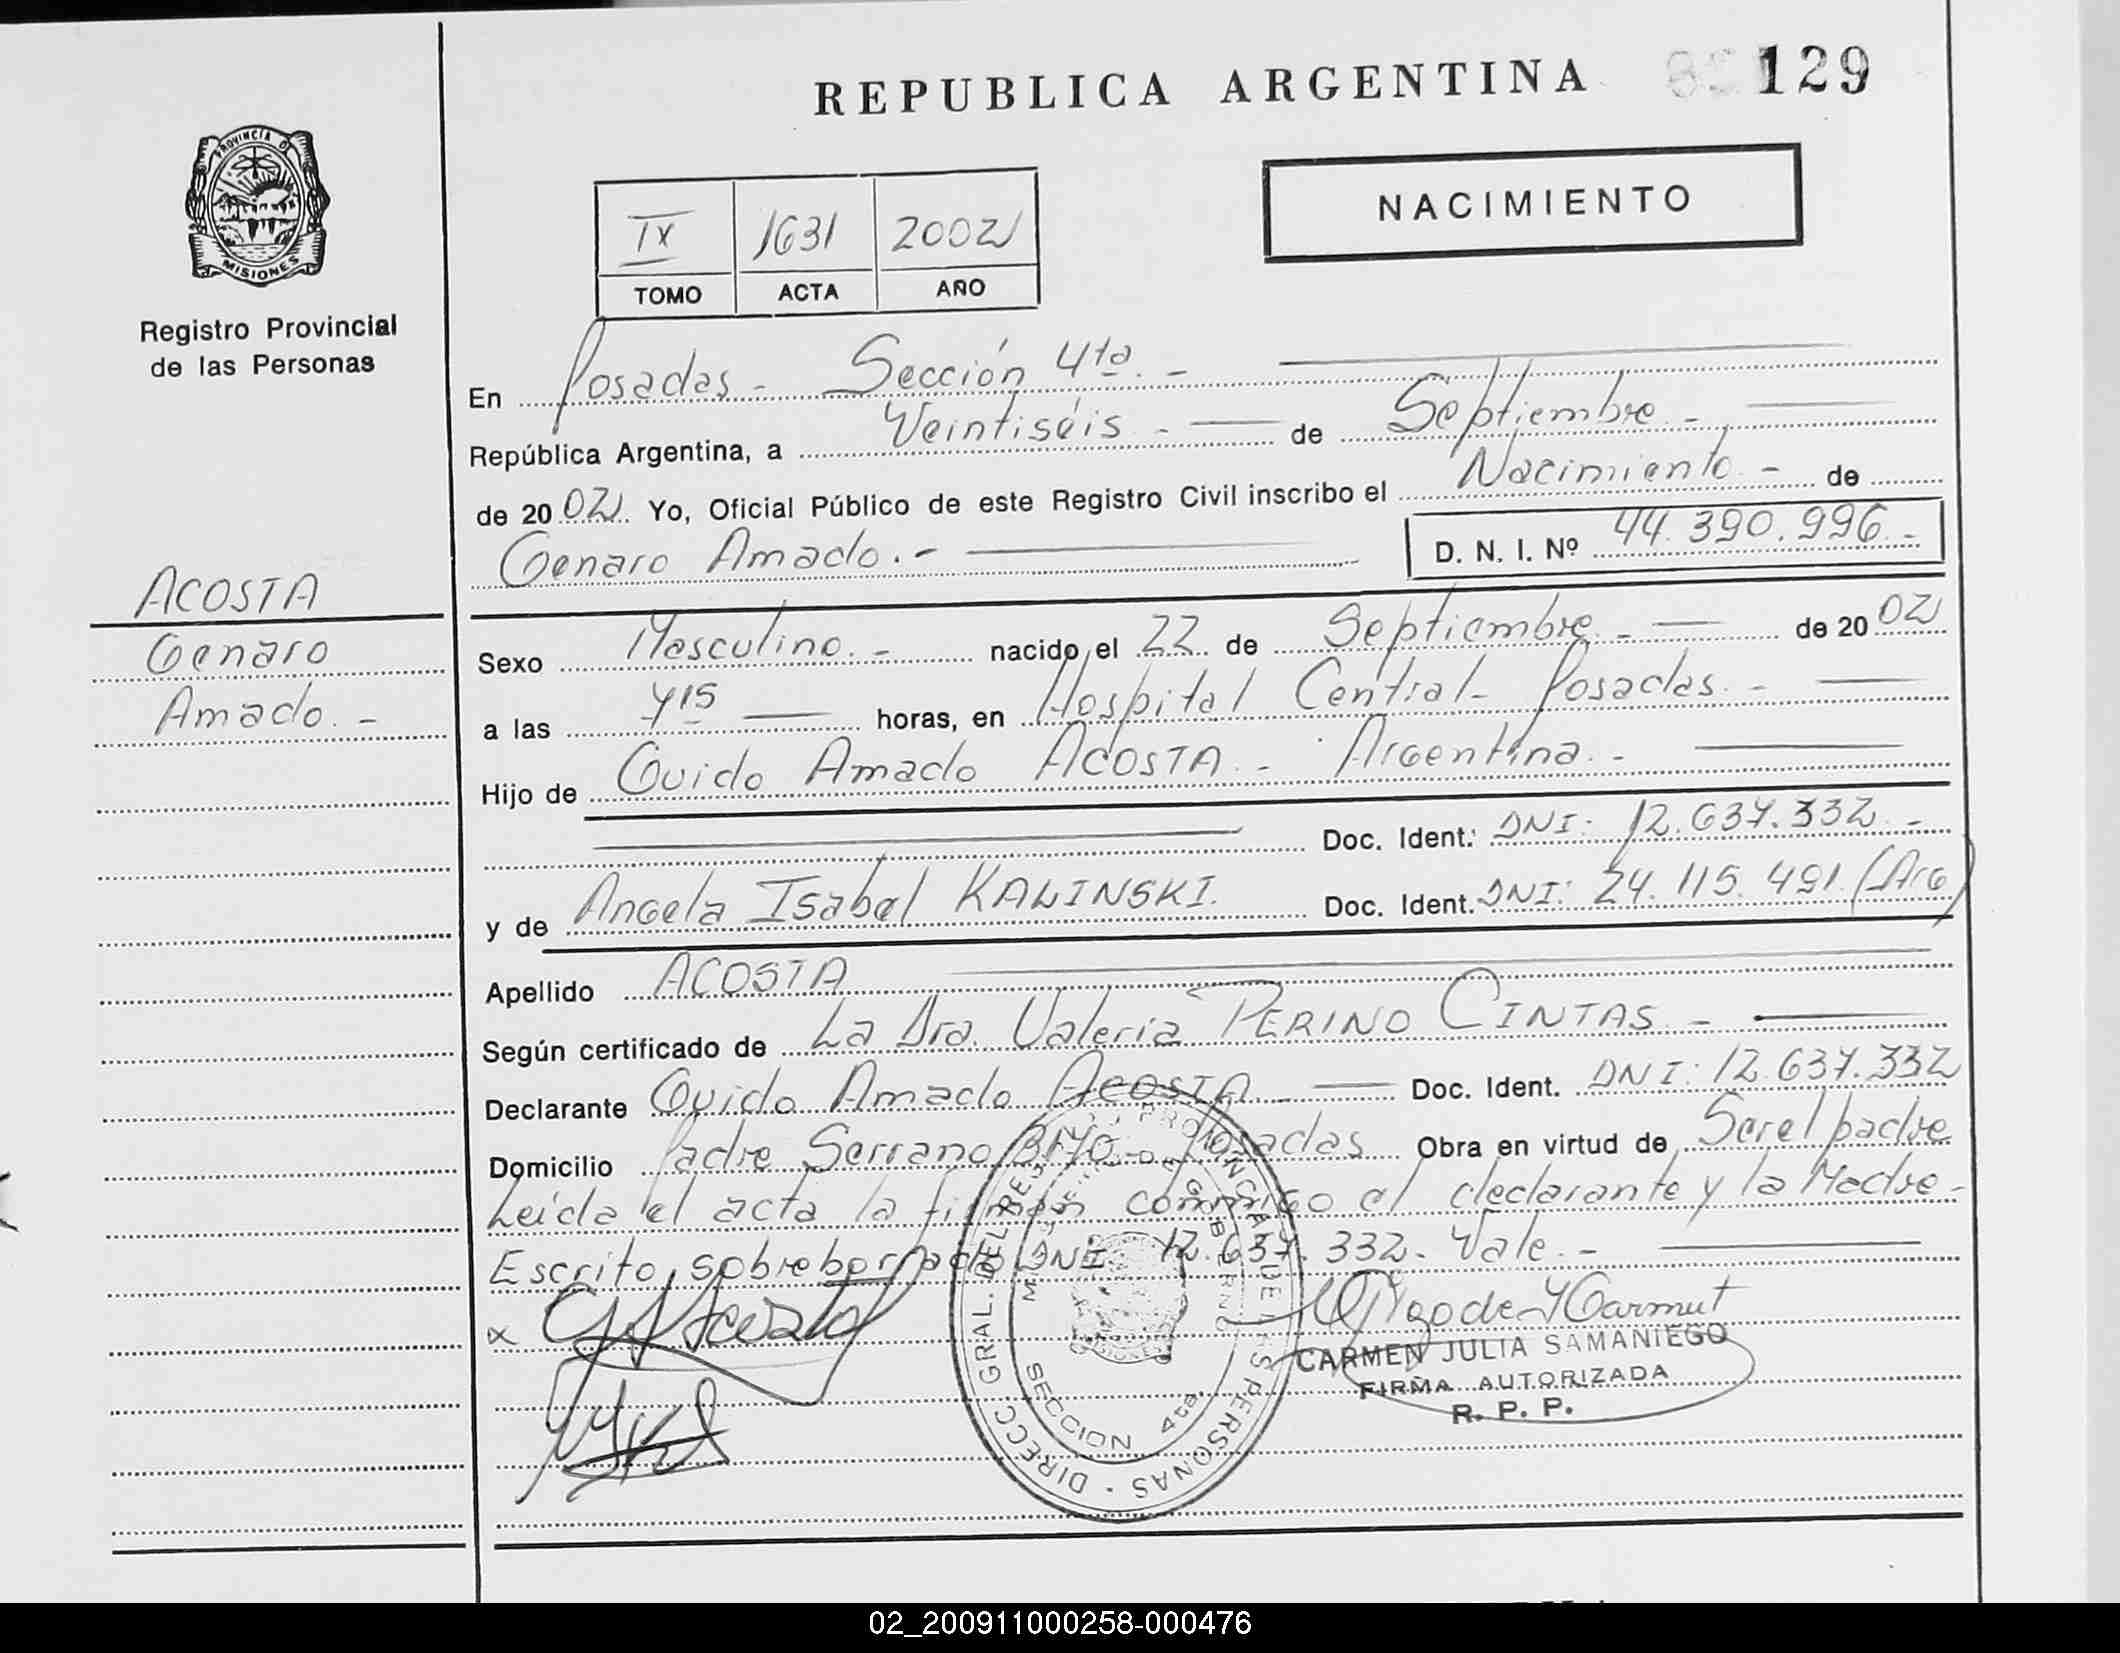 REPUBLICA ARGENTINA 129
PROVINCIA DE
MISIONES
Registro Provincial
de las Personas
NACIMIENTO
IX 1631 2002
TOMO ACTA AÑO
En Posadas - Sección 4ta. -
República Argentina, a Veintiséis - de Septiembre -
de 2002 Yo, Oficial Público de este Registro Civil inscribo el Nacimiento - de
Genaro Amado. - D. N. I. Nº 44.390.996 -
ACOSTA
Genaro
Amado. -
Sexo Masculino. - nacido el 22 de Septiembre - de 2002
a las 715 horas, en Hospital Central - Posadas. -
Hijo de Guido Amado ACOSTA. - Argentina. -
Doc. Ident.: DNI: 12.637.332 -
y de Angela Isabel KALINSKI. Doc. Ident. DNI: 24.115.491 (Arg)
Apellido ACOSTA
Según certificado de La Dra. Valeria PERINO CINTAS -
Declarante Guido Amado ACOSTA - Doc. Ident. DNI: 12.637.332
Domicilio Padre Serrano Posadas Obra en virtud de Ser el padre
Leída el acta la firman conmigo el declarante y la Madre -
Escrito sobreborrado DNI 12.637.332. Vale. -
DIRECC. GRAL. DEL REG. PROVINCIAL DE LAS PERSONAS
SECCION 4ta.
CARMEN JULIA SAMANIEGO
FIRMA AUTORIZADA
R. P. P.
02_200911000258-000476